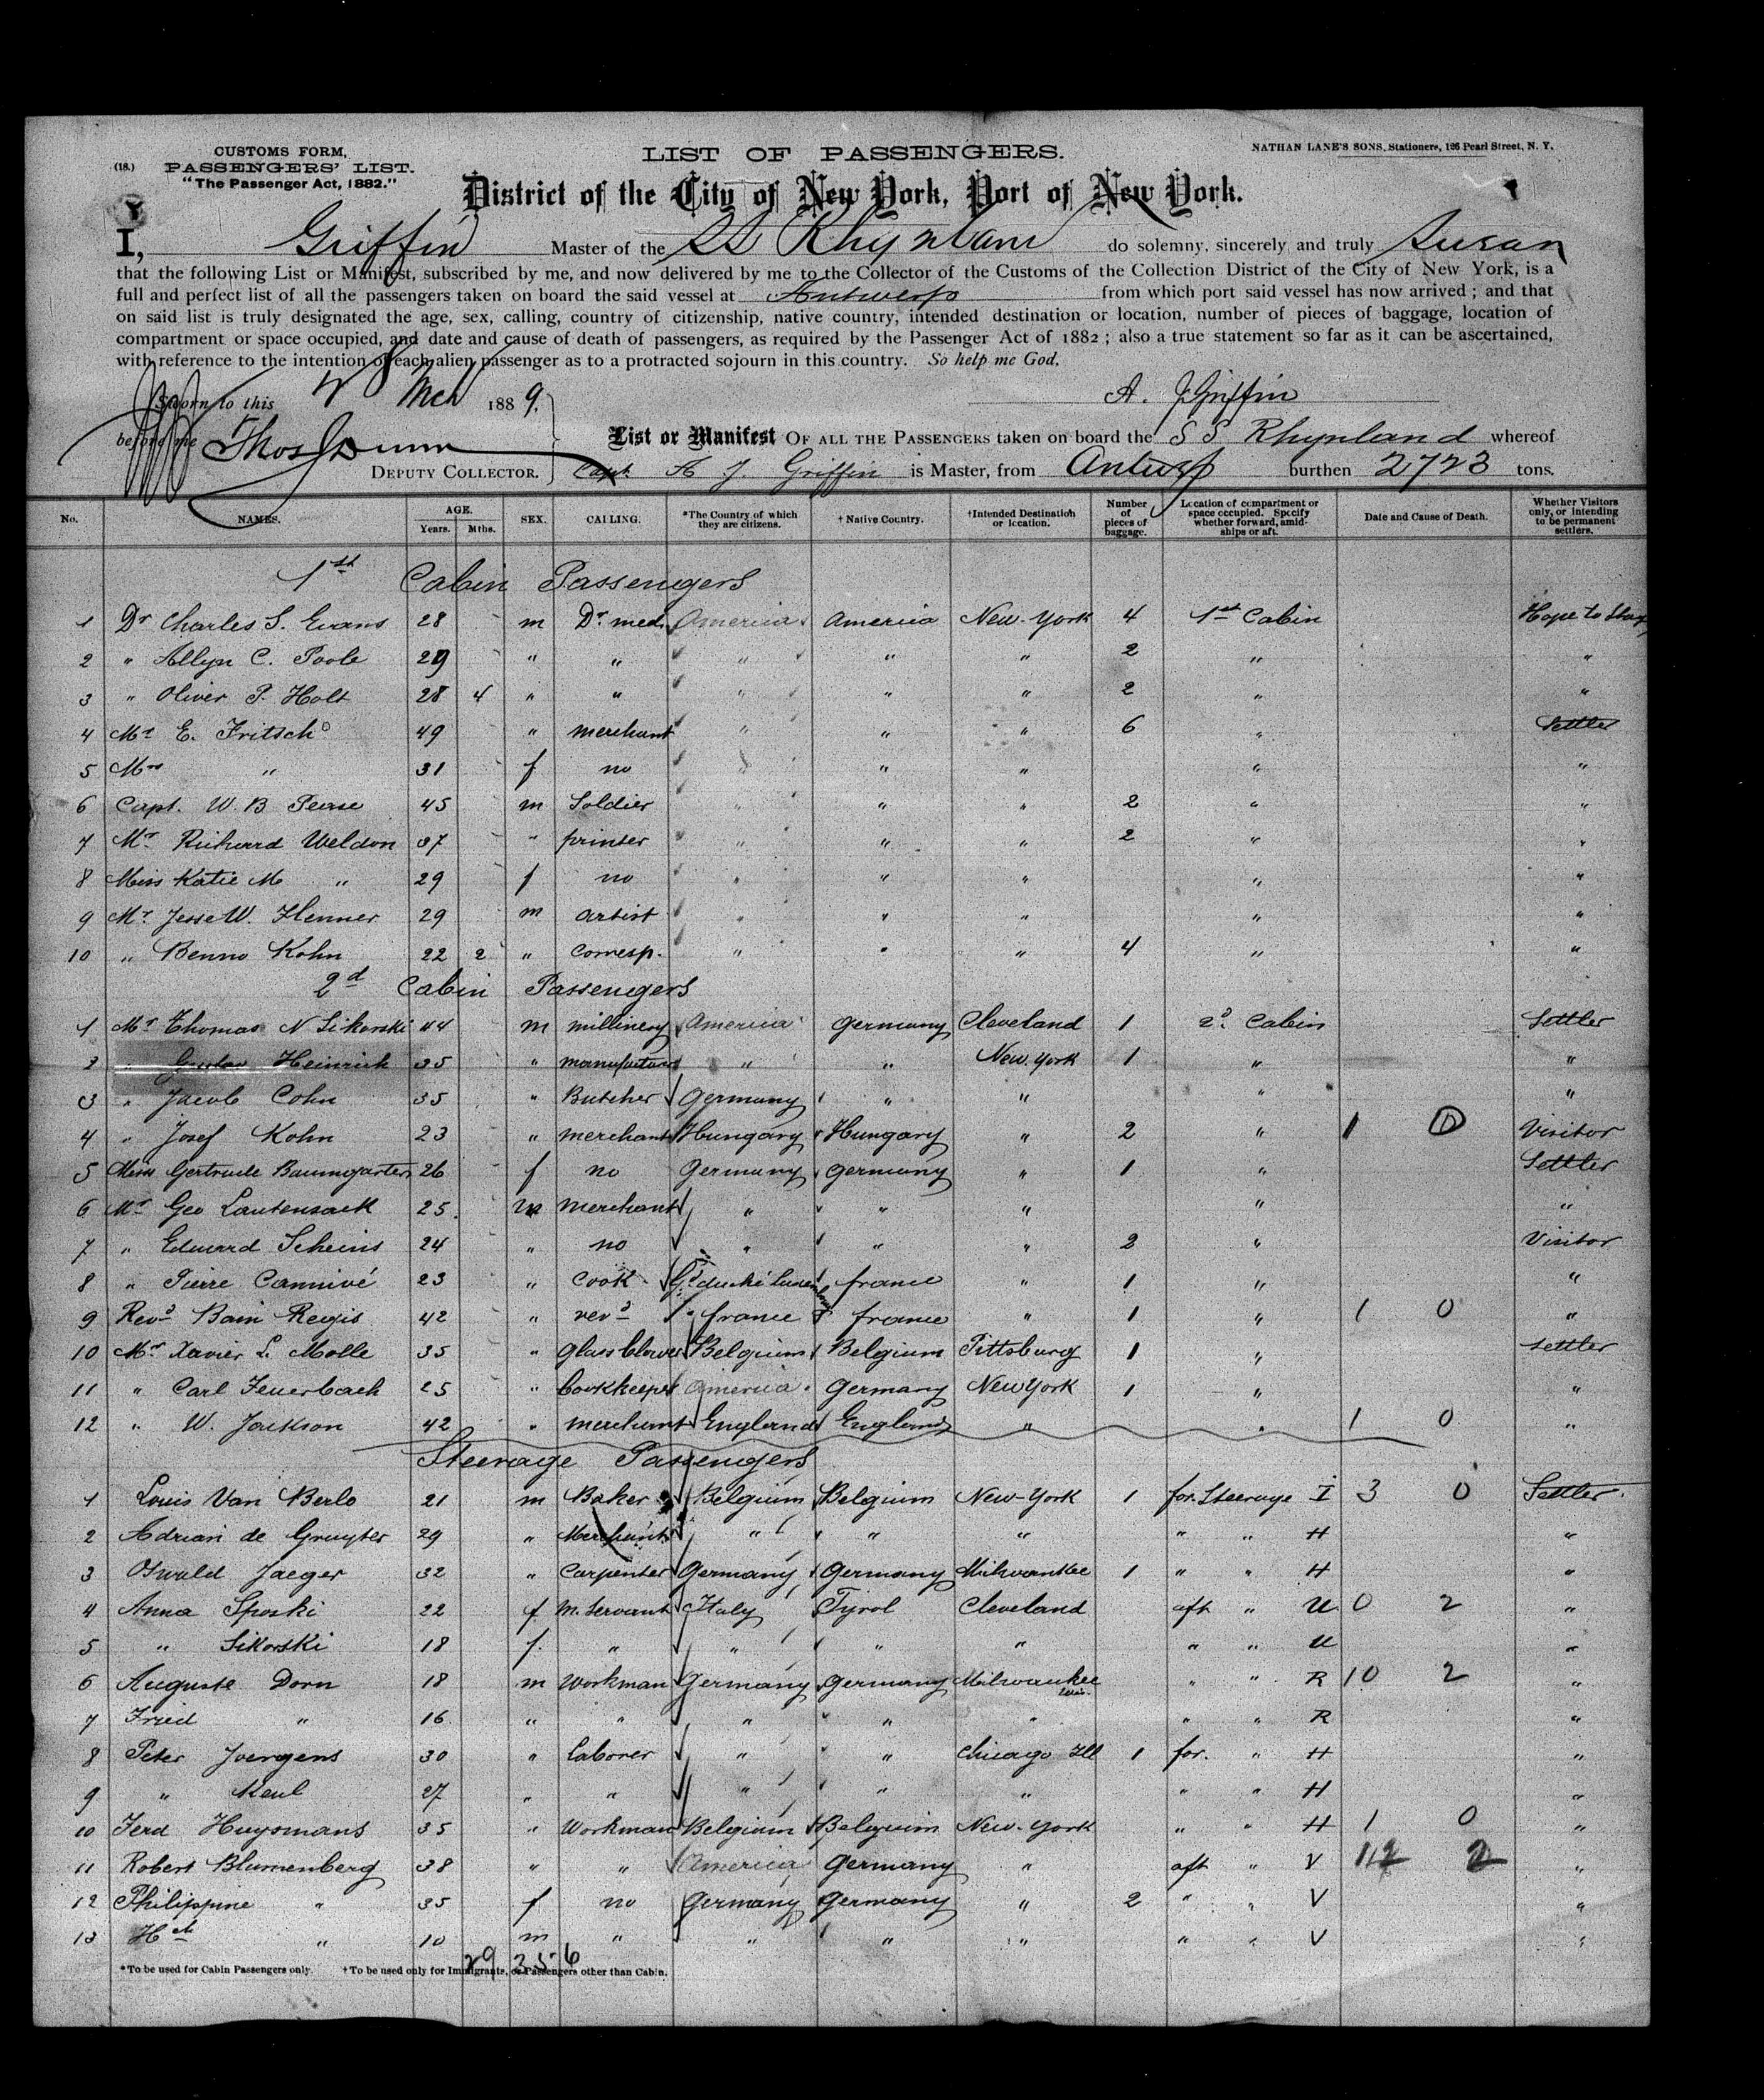 (18.)
CUSTOMS FORM,
PASSENGERS' LIST.
"The Passenger Act, 1882."
LIST OF PASSENGERS.
NATHAN LANE'S SONS, Stationers, 126 Pearl Street, N. Y.
District of the City of New York, Port of New York.
I, Griffin Master of the SS Rhynland do solemny, sincerely and truly
that the following List or Manifest, subscribed by me, and now delivered by me to the Collector of the Customs of the Collection District of the City of New York, is a
full and perfect list of all the passengers taken on board the said vessel at Antwerp from which port said vessel has now arrived ; and that
on said list is truly designated the age, sex, calling, country of citizenship, native country, intended destination or location, number of pieces of baggage, location of
compartment or space occupied, and date and cause of death of passengers, as required by the Passenger Act of 1882 ; also a true statement so far as it can be ascertained,
with reference to the intention of each alien passenger as to a protracted sojourn in this country. So help me God,
Sworn to this Mch 1889. A. J. Griffin
before me Thos Dunn List or Manifest OF ALL THE PASSENGERS taken on board the S S Rhynland whereof
DEPUTY COLLECTOR. Capt. A J. Griffin is Master, from Antwerp burthen 2723 tons.
No. NAMES. AGE. Years. Mths. SEX. CALLING. *The Country of which they are citizens. † Native Country. †Intended Destination or location. Number of pieces of baggage. Location of compartment or space occupied. Specify whether forward, amidships or aft. Date and Cause of Death. Whether Visitors only, or intending to be permanent settlers.
1st Cabin Passengers
1 Dr Charles S. Evans 28 m Dr. med. America America New-York 4 1st Cabin Hope to Stay
2 " Allyn C. Poole 29 " " " " " 2 " "
3 " Oliver P. Holt 28 4 " " " " " 2 " "
4 Mr E. Fritsch 49 " merchant " " " 6 " Settler
5 Mrs " 31 f no " " " " "
6 Capt. W. B Pease 45 m Soldier " " " 2 " "
7 Mr Richard Weldon 37 " printer " " " 2 " "
8 Miss Katie M " 29 f no " " " " "
9 Mr. Jesse W. Henner 29 m artist " " " " "
10 " Benno Kohn 22 2 " corresp. " " " 4 " "
2d Cabin Passengers
1 Mr Thomas N Sikorski 44 m millinery America Germany Cleveland 1 2d. Cabin Settler
2 " Gustav Heinrich 35 " manufacturer " " New. York 1 " "
3 " Jacob Cohn 35 " Butcher Germany " " " "
4 " Josef Kohn 23 " merchant Hungary Hungary " 2 " 1 0 Visitor
5 Miss Gertrude Baumgarten 26 f no Germany Germany " 1 " Settler
6 Mr Geo Lautensack 25. m merchant " " " " "
7 " Eduard Scheins 24 " no " " " 2 " Visitor
8 " Pierre Cannivé 23 " Cook france " 1 " "
9 Revd Bain Regis 42 " revd " france france " 1 " 1 0 "
10 Mr Xavier L. Molle 35 " glassblower Belgium Belgium Pittsburg 1 " settler
11 " Carl Feuerbach 25 " bookkeeper america Germany New York 1 " "
12 " W. Jackson 42 " merchant England England " " 1 0 "
Steerage Passengers
1 Louis Van Berlo 21 m Baker Belgium Belgium New-York 1 for. Steerage I 3 0 Settler.
2 Adrian de Gruyter 29 " Merchant " " " " " H "
3 Oswald Jaeger 32 " Carpenter Germany Germany Milwaukee 1 " " H "
4 Anna Sporki 22 f M. Servant Italy Tyrol Cleveland aft " U 0 2 "
5 " Sikorski 18 f. " " " " " " U "
6 Auguste Dorn 18 m Workman Germany Germany Milwaukee Wis. " " R 10 2 "
7 Fried " 16 " " " " " " " R "
8 Peter Joergens 30 " laborer " " Chicago Ill 1 for. " H "
9 " Keul 27 " " " " " " " H "
10 Ferd Huysmans 35 " Workman Belgium Belgium New-York " " H 1 0 "
11 Robert Blumenberg 38 " " America Germany " aft " V 2 "
12 Philippine " 35 f no Germany Germany " 2 " " V "
13 Hch " 10 m " " " " " " V "
*To be used for Cabin Passengers only. †To be used only for Immigrants, or Passengers other than Cabin.
29 256